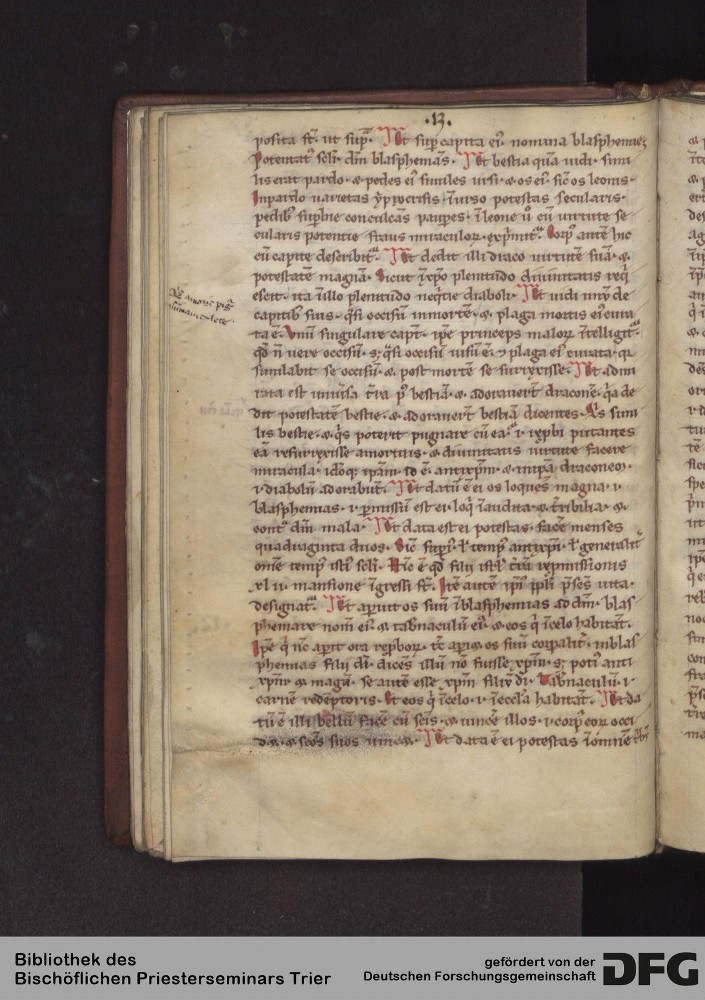 .13.
posita st. ut sup. Et sup capita ei nomina blasphemie
Potentat scli dm blasphemas. Et bestia qua uidi. simi
lis erat pardo. & pedes ei similes ursi. & os ei sic os leonis.
Inpardo uarietas ypocrisis. i urso potestas secularis.
pedib supbie conculcas paupes. i leone u cu uirtute se
cularis potentie fraus miraculor exprimit. Corp aute hic
cu capite describit. Et dedit illi draco uirtute sua. &
potestate magna. Sicut i xpo plenitudo diuinitatis req
escit. ita i illo plenitudo neqtie diaboli. Et uidi unu de
capitib suis. qsi occisu in morte. & plaga mortis ei cura
ta e. Unu singulare capt. ipe princeps malor itelligit.
qd n uere occisu. s; qsi occisu uisu e. & plaga ei curata. qr
simulabit se occisu. & post morte se surrexisse. Et admi
rata est uniusa tra p bestia. & adorauert dracone. qa de
dit potestate bestie. & adorauert bestia dicentes. Qs simi
lis bestie. & qs poterit pugnare cu ea. putantes
ea resurrexisse amortuis. & diuinitatis uirtute facere
miracula. idoq ipam. id e. antixpm. & inipa dracone.
i diabolu adorabut. Et datu e ei os loques magna. i
blasphemias. i pmissu est ei loqi inaudita. & tribilia. &
cont dm mala. Et data est ei potestas. face menses
quadraginta duos. Sic sup. l temp antixpi. l generalit
ome temp isti scli. Hic e qd filii isrl cu repmissionis
xl ii mansione igressi st.
designat. Et aperuit os suu i blasphemias ad dm. blas
phemare nom ei. & tabnaculu ei. & eos q i celo habitat.
Ipe q nc aperit ora repbor. tc aperiet os suu corpalit. in blas
phemias filii di. dices illu no fuisse xpm. s; poti anti
xpm & magu. se aute esse xpm filiu di. Tabnaculu. i
carne redeptoris. Et eos q i celo. i i eccla habitat. Et da
tu e illi bellu face cu scis. & uince illos. i corp eor occi
Et data e ei potestas i omne trib
Bibliothek des
Bischöflichen Priesterseminars Trier
gefördert von der
Deutschen Forschungsgemeinschaft
DFG